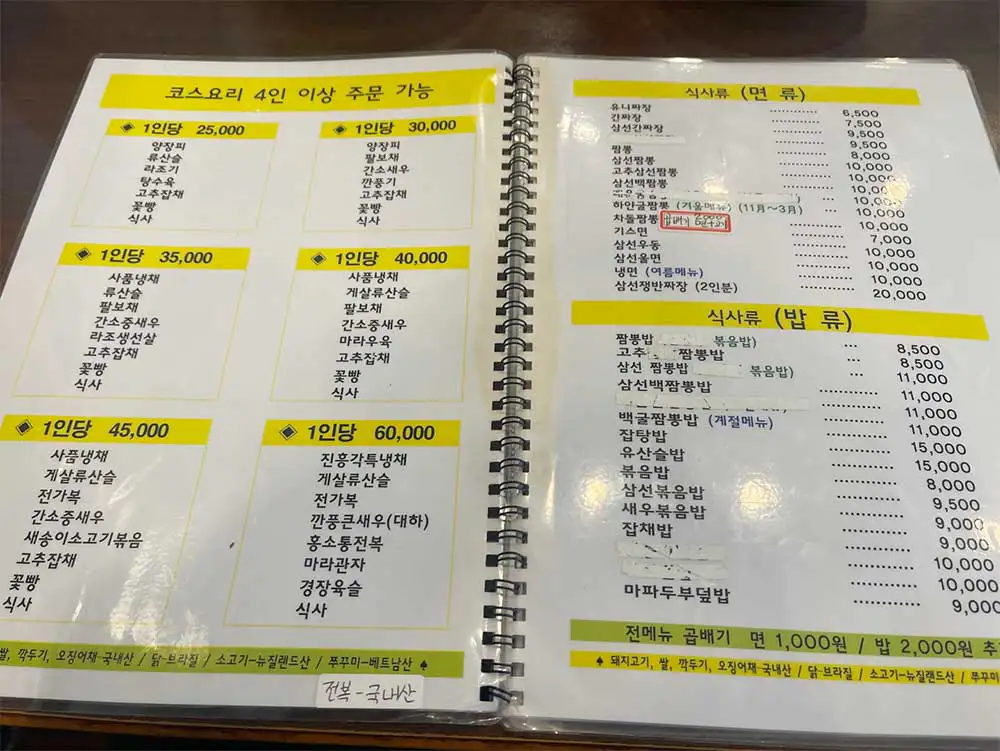 코스요리 4인 이상 주문 가능
◈ 1인당 25,000
양장피
류산슬
라조기
탕수육
고추잡채
꽃빵
식사
◈ 1인당 30,000
양장피
팔보채
간소새우
깐풍기
고추잡채
꽃빵
식사
◈ 1인당 35,000
사품냉채
류산슬
팔보채
간소중새우
라조생선살
고추잡채
꽃빵
식사
◈ 1인당 40,000
사품냉채
게살류산슬
팔보채
간소중새우
마라우육
고추잡채
꽃빵
식사
◈ 1인당 45,000
사품냉채
게살류산슬
전가복
간소중새우
새송이소고기볶음
고추잡채
꽃빵
식사
◈ 1인당 60,000
진흥각특냉채
게살류산슬
전가복
깐풍큰새우(대하)
홍소통전복
마라관자
경장육슬
식사
쌀, 깍두기, 오징어채-국내산 / 닭-브라질 / 소고기-뉴질랜드산 / 쭈꾸미-베트남산 ♠
전복-국내산
식사류 (면 류)
유니짜장 6,500
간짜장 7,500
삼선간짜장 9,500
9,500
짬뽕 8,000
삼선짬뽕 10,000
고추삼선짬뽕 10,000
삼선백짬뽕 10,000
10,000
하얀굴짬뽕 (겨울메뉴) (11月~3月) 10,000
차돌짬뽕 곱빼기 10,000
기스면 7,000
삼선우동 10,000
삼선울면 10,000
냉면 (여름메뉴) 10,000
삼선쟁반짜장 (2인분) 20,000
식사류 (밥 류)
짬뽕밥 볶음밥) 8,500
고추 짬뽕밥 8,500
삼선 짬뽕밥 볶음밥) 11,000
삼선백짬뽕밥 11,000
11,000
백굴짬뽕밥 (계절메뉴) 11,000
잡탕밥 15,000
유산슬밥 15,000
볶음밥 8,000
삼선볶음밥 9,500
새우볶음밥 9,000
잡채밥 9,000
10,000
10,000
마파두부덮밥 9,000
전메뉴 곱배기 면 1,000원 / 밥 2,000원 추
♠ 돼지고기, 쌀, 깍두기, 오징어채-국내산 / 닭-브라질 / 소고기-뉴질랜드산 / 쭈꾸미-